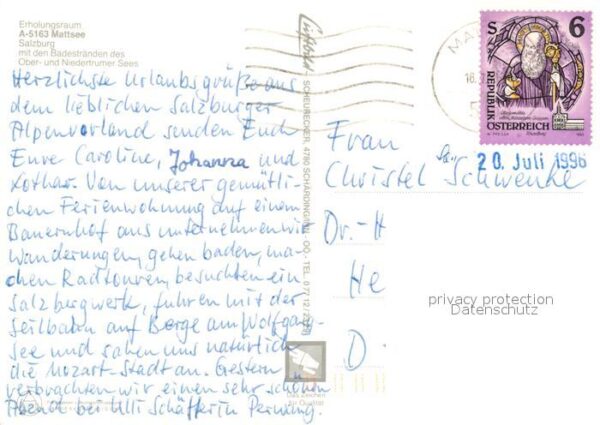 Erholungsraum
A-5163 Mattsee
Salzburg
mit den Badestränden des
Ober- und Niedertrumer Sees
Herzlichste Urlaubsgrüße aus
dem lieblichen Salzburger
Alpenvorland senden Euch
Eure Caroline, Johanna und
Lothar. Von unserer gemütli-
chen Ferienwohnung auf einem
Bauernhof aus unternehmen wir
Wanderungen, gehen baden, ma-
chen Radtouren, besuchten ein
Salzbergwerk, fuhren mit der
Seilbahn auf Berge am Wolfgang-
see und sahen uns natürlich
die Mozart-Stadt an. Gestern
verbrachten wir einen sehr schönen
Abend bei Ulli Schäffer in Perwang.
SCHÄRDING/INN
Das Zeichen
für Qualität
MA
16.
S 6
REPUBLIK
ÖSTERREICH
20. Juli 1996
Frau
Christel Schwenke
Dr.-H
He
D
privacy protection
Datenschutz